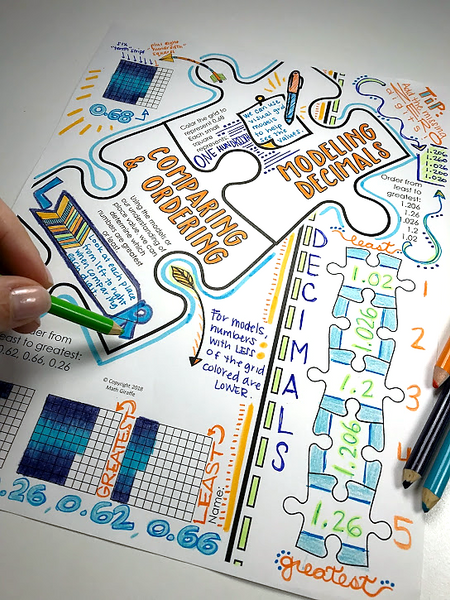 six
"tenth" strips
plus eight
"hundredth"
squares
0.68
Color the grid to
represent 0.68
Each small
square
represents
ONE HUNDREDTH
We can use
visual grid
models
to help
see the
values.
MODELING
DECIMALS
COMPARING
& ORDERING
Using the models or
our understanding of
place value, we can
determine which
numbers are greatest
or least.
Look at each place
from left to right
when comparing
TIP:
Add the missing
digits
1.206
1.260
1.026
1.200
1.020
Order from
least to greatest:
1.206
1.26
1.026
1.2
1.02
DECIMALS
least
1.02
1
1.026
2
1.2
3
1.206
4
1.26
5
greatest
For models,
numbers
with LESS
of the grid
colored are
LOWER.
Order from
least to greatest:
0.62, 0.66, 0.26
© Copyright 2018
Math Giraffe
GREATEST
LEAST
Name:
0.26, 0.62, 0.66